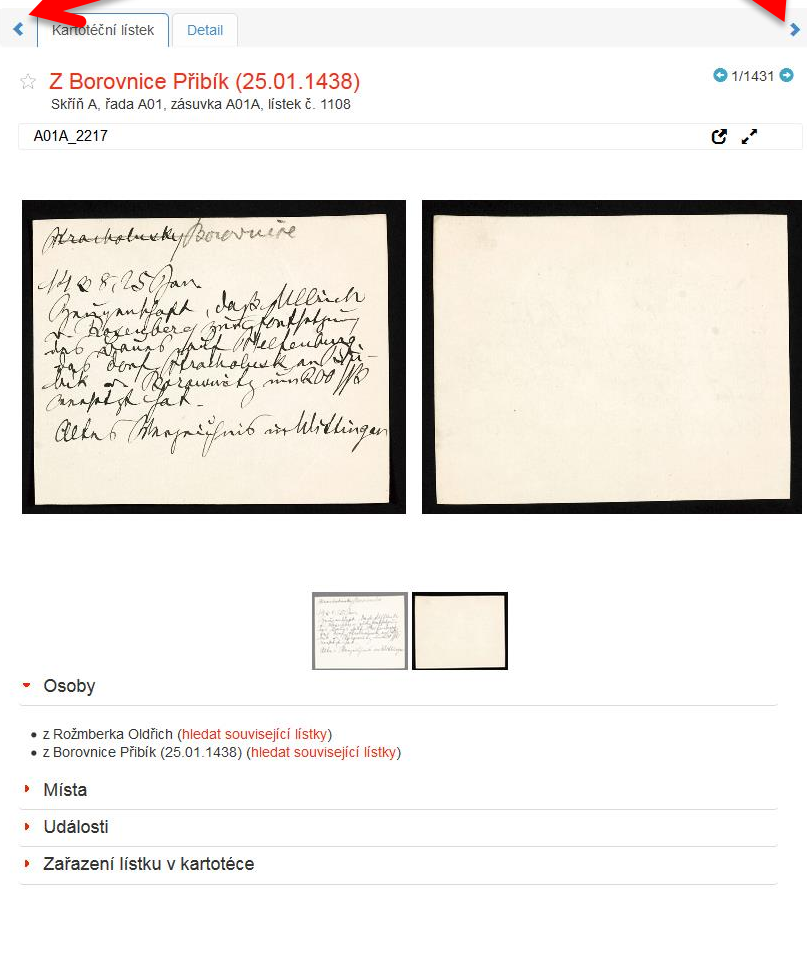 Kartotéční lístek
Detail
Z Borovnice Přibík (25.01.1438)
1/1431
Skříň A, řada A01, zásuvka A01A, lístek č. 1108
A01A_2217
Stracholusky Borovnice
1438, 25 Jan.
daß Ullrich
v. Rosenberg zur Fortsetzung
des Baues auf
das Dorf an Při-
bik v. um 200 ßß
versetzt hat.
Altes Verzeichnis in Wittingen
Osoby
• z Rožmberka Oldřich (hledat související lístky)
• z Borovnice Přibík (25.01.1438) (hledat související lístky)
Místa
Události
Zařazení lístku v kartotéce